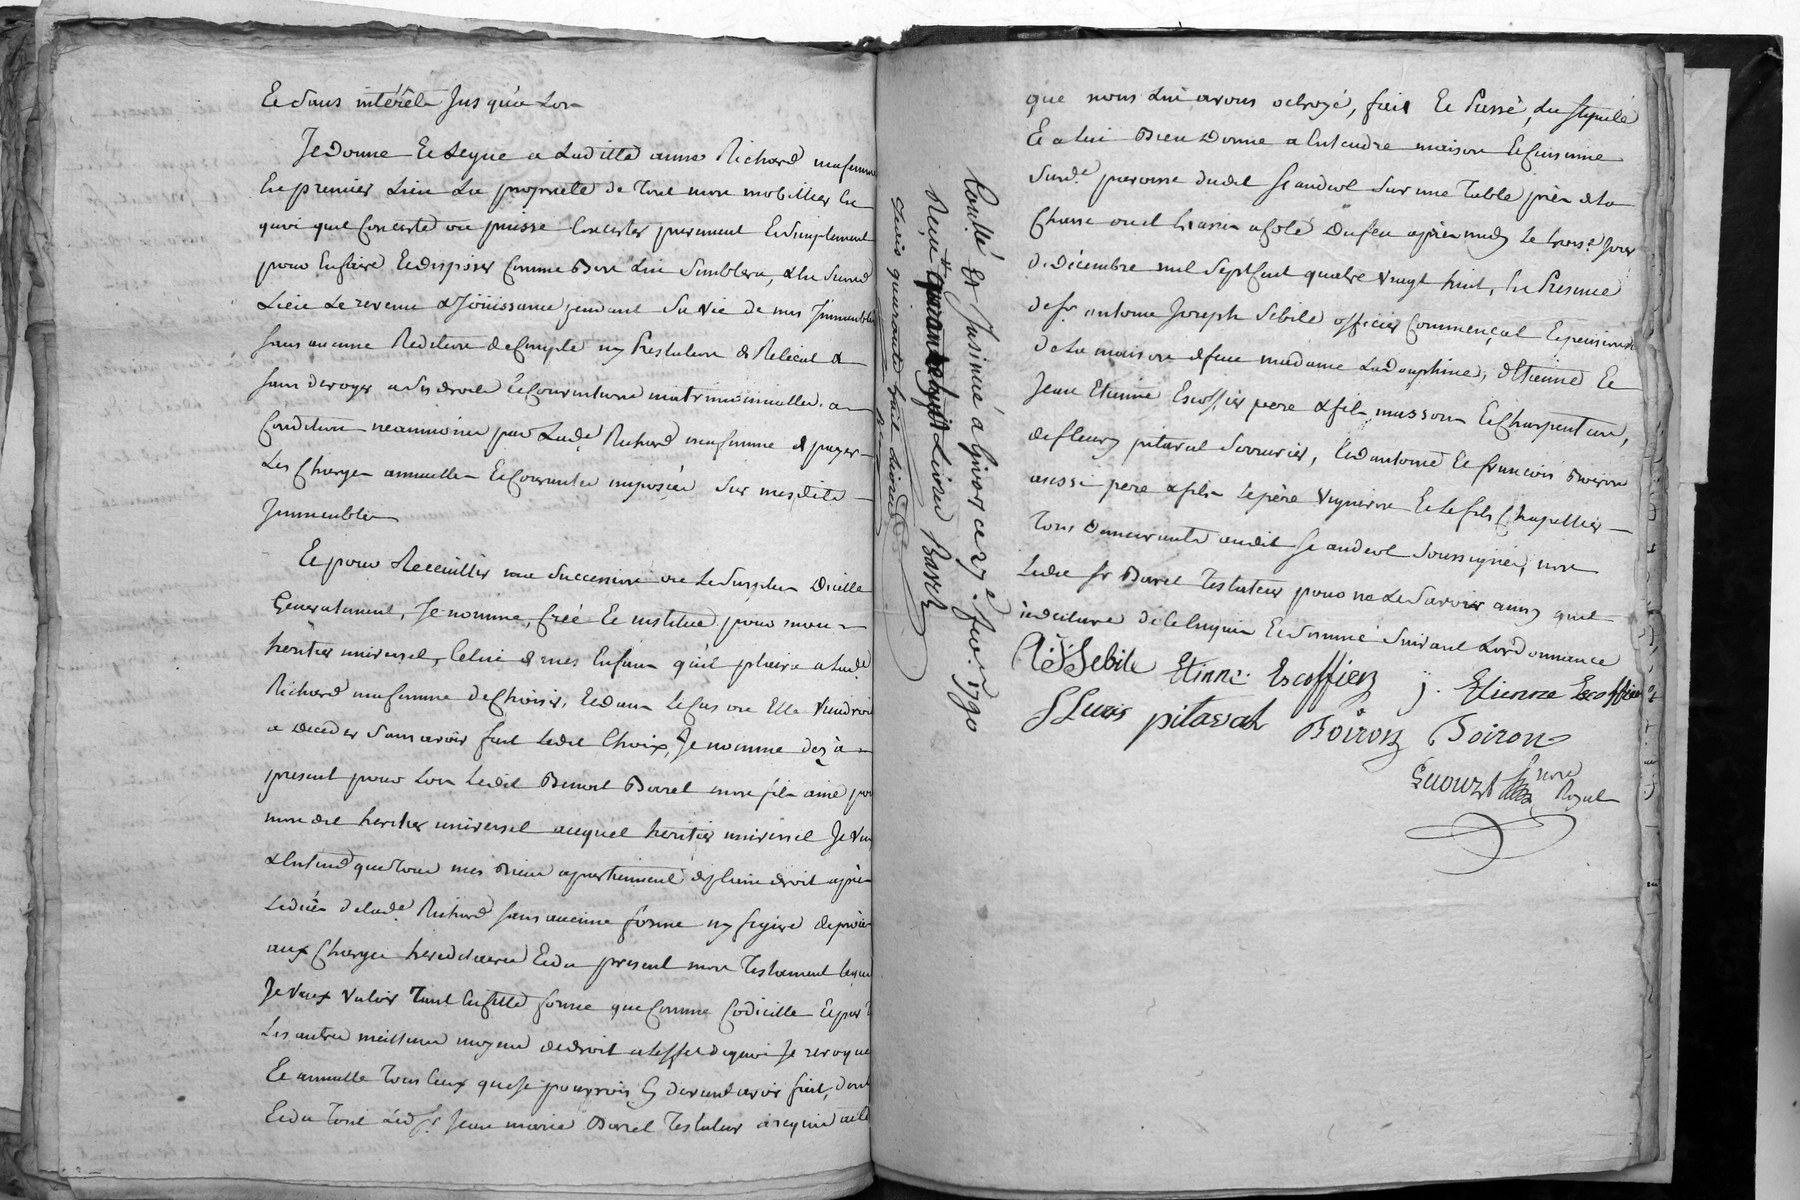 Et sans intérêt Jusqu'a Lors
Je donne Et Legue a Laditte anne Richard ma femme
En premier Lieu La proprieté de Tout mon mobillier En
quoi quil Conciste ou puisse Concister purement Et simplement
pour En faire Et disposer Comme Bon Lui Semblera, & En Second
Lieu Le revenu & Jöuissance pendant Sa vie de mes Immeubles
sans aucune Reditione de Compte ny Prestation de Relicat &
sans deroger a Ses droits Et Conventions matrimonialles. a
Condition neanmoins par Lade Richard ma femme de payer
Les Charges annuelles Et Courantes imposées Sur mesdits
Immeubles
Et pour Recueillir ma Succession ou Le Surplus D'icelle
Generalement, Je nomme, Créé Et institue pour mon
heritier universel, Celui de mes Enfans qu'il plaira a Lade
Richard ma femme de Choisir, Et dans Le Cas ou Elle viendroit
a deceder Sans avoir fait Ledit Choix, Je nomme dez a
present pour Lors Ledit Benoit Borel mon fils ainé pour
mondit heritier universel auquel heritier universel Je veux
& Entend que Tous mes Biens apartiennent de plein droit après
Le décès de Lade Richard sans aucune forme ny figure de procès
aux Charges hereditaires Et du present mon Testament lequel
Je veux valoir Tant En Cette forme que Comme Codicille Et par
Les autres meilleurs moyens de droit a L'effet de quoi Je revoque
Et annulle Tous Ceux que Je pourrois Cy devant avoir fait, dont
Et du Tout Led Sr Jean marie Borel Testateur a requis acte
que nous Lui avons octroyé, fait Et Passé, Lu Stipulé
Et a Lui Bien Donné a Entendre maison Et Cuisine
Sur de paroisse dudit St andeol Sur une Table près de La
Chasse ou il Era assis a Coté Du feu après midy Le trois.e Jour
de Décembre mil Sept Cent quatre vingt huit, En Presence
de Sr antoine Joseph Sebile officier Commençal Et pensionné
de La maison de feue madame La dauphine, d'Etienne Et
Jean Etienne Escoffier pere & fils masson Et Charpentier,
de fleury pitaval Serrurier, Et d'antoine Et francois Boiron
aussi pere & fils Le père vigneron Et Le fils Chapellier
Tous Demeurants audit St andeol Soussignés, non
Ledit Sr Borel Testateur pour ne Le Savoir ainsy quil
a déclaré de Ce Enquis Et Sommé Suivant L'ordonnance
AJSebile Etienne Escoffier j. Etienne Escoffier
fleuris pitaval Boiron Boiron
nore
Royal
Contrôlé Et Insinué a Givors ce 27.e fevr. 1790
Reçu quarante huit Livres
dis quarante huit Livres